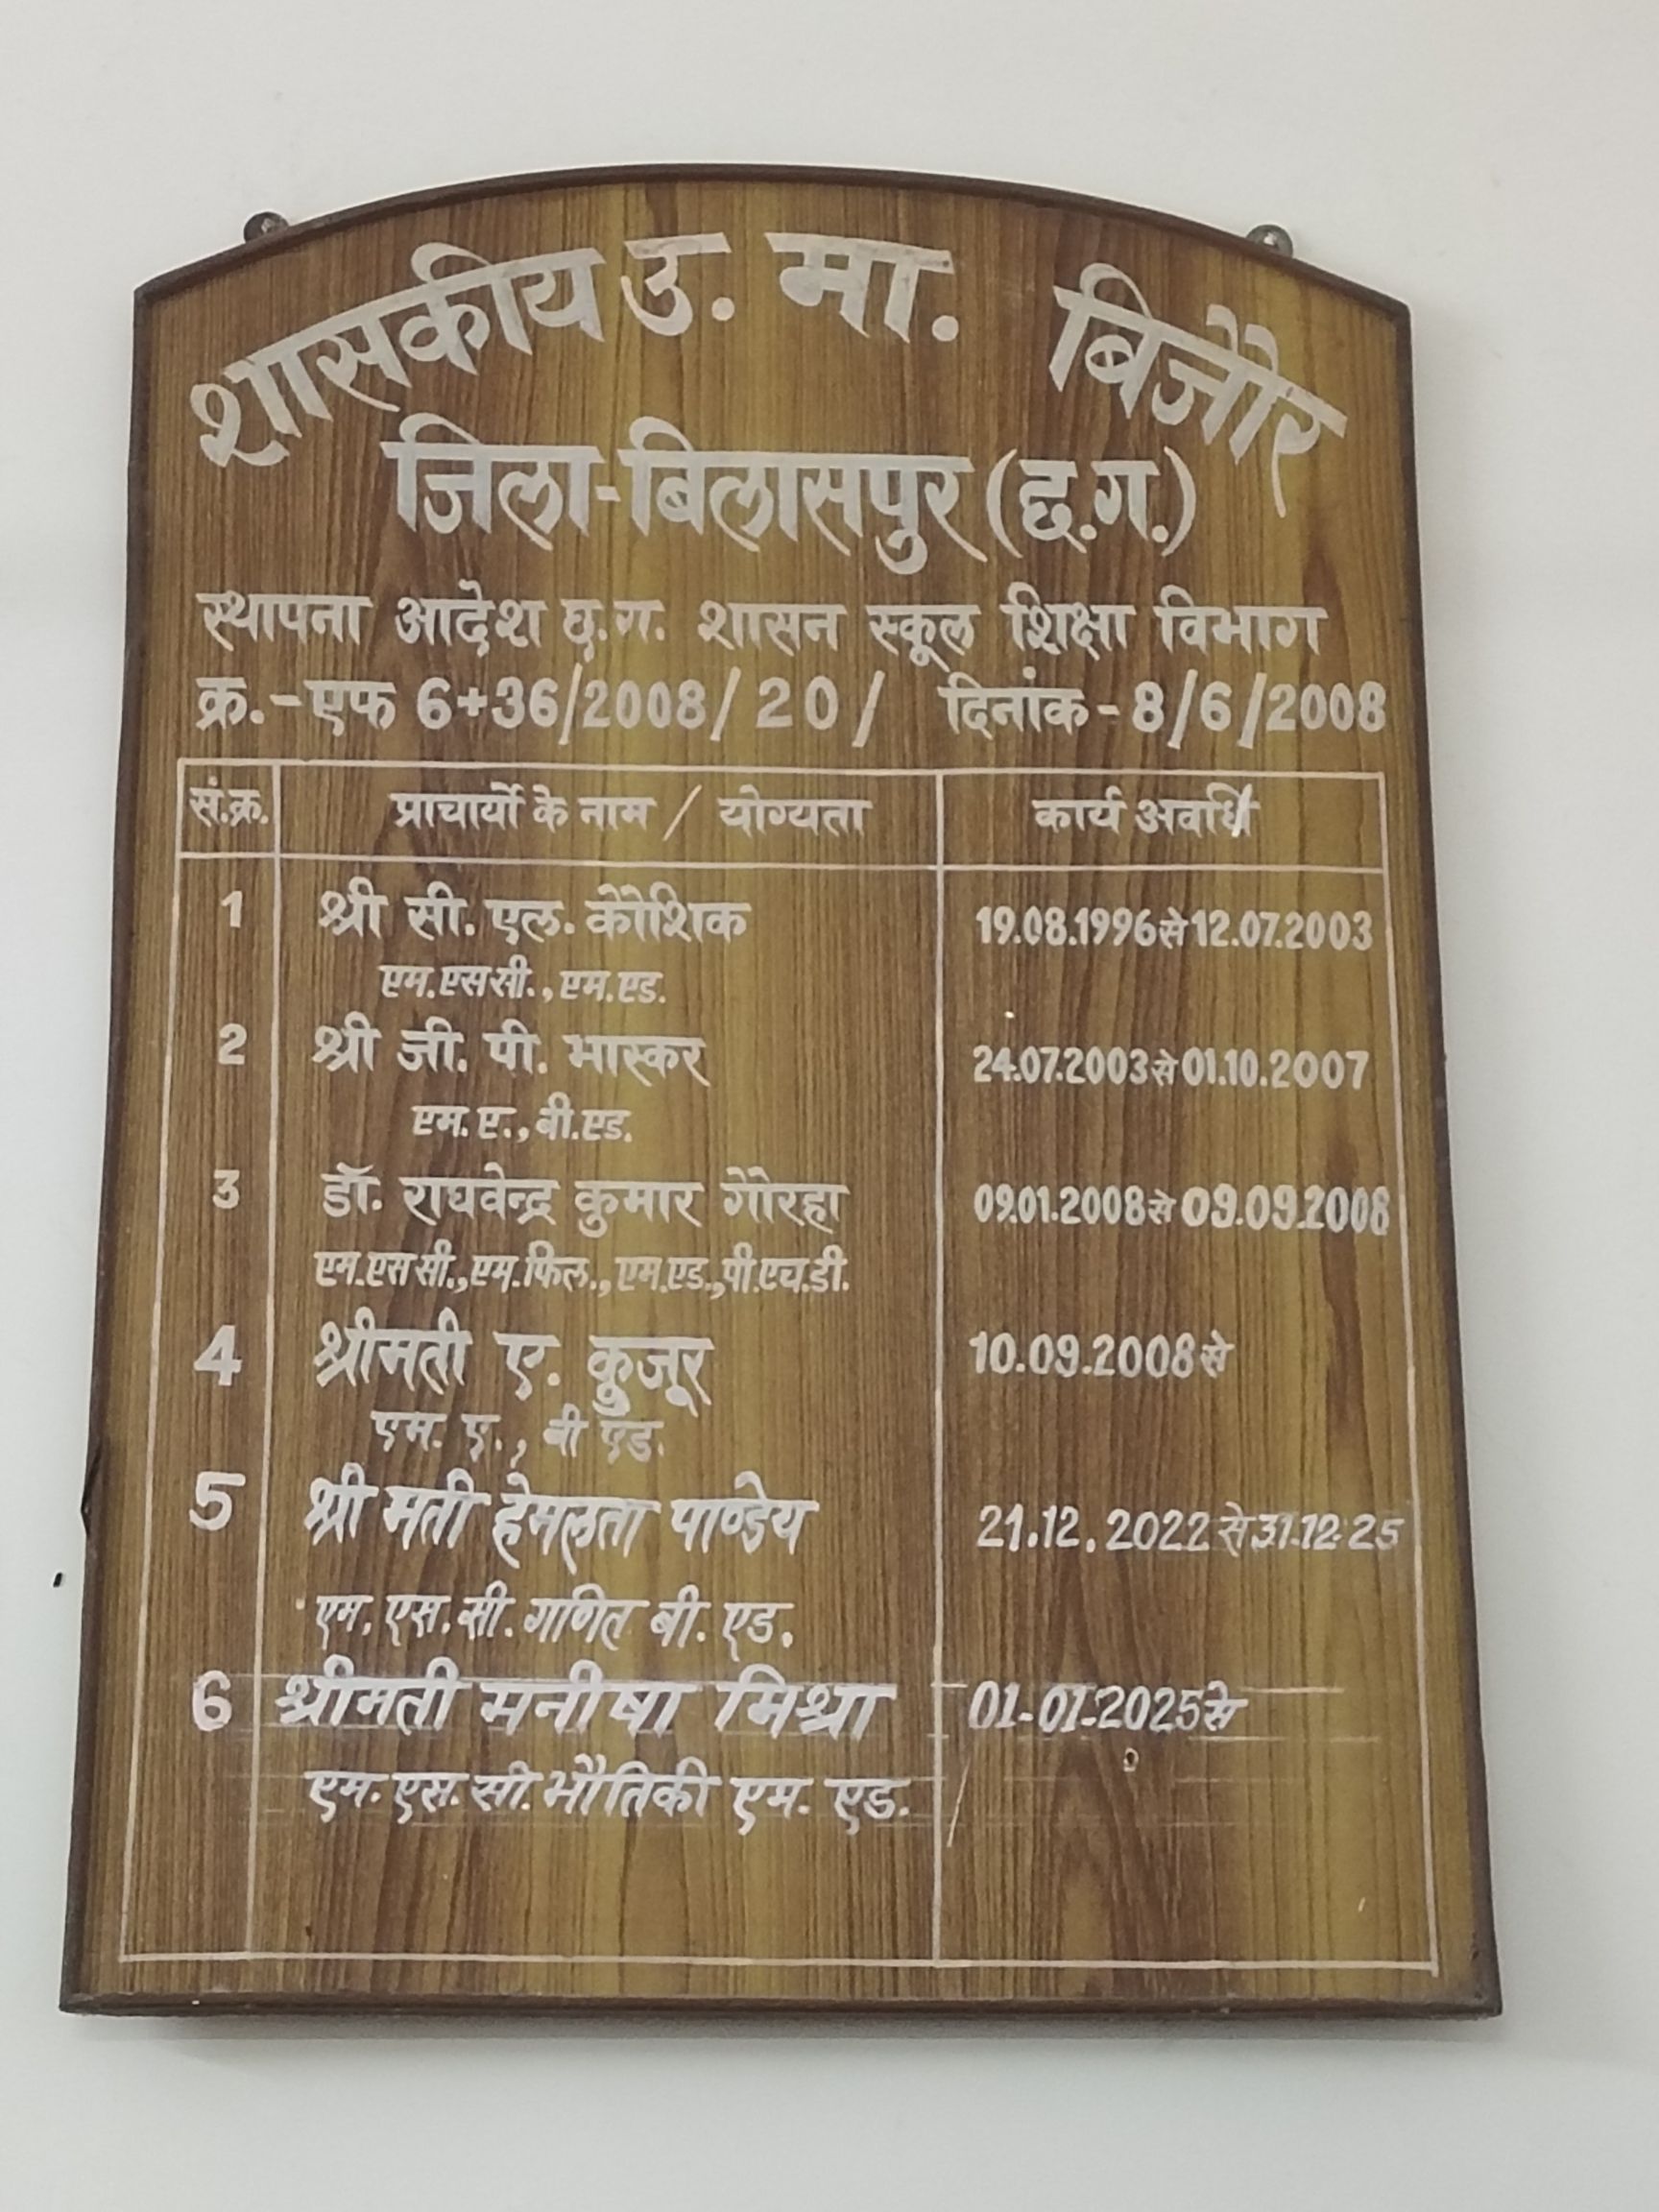 शासकीय उ. मा. बिजौर
जिला-बिलासपुर (छ.ग.)
स्थापना आदेश छ.ग. शासन स्कूल शिक्षा विभाग
क्र.-एफ 6+36/2008/20/ दिनांक-8/6/2008
सं.क्र. प्राचार्यो के नाम / योग्यता कार्य अवधि
1 श्री सी. एल. कौशिक 19.08.1996 से 12.07.2003
एम.एससी., एम.एड.
2 श्री जी. पी. भास्कर 24.07.2003 से 01.10.2007
एम. ए., बी.एड.
3 डॉ. राघवेन्द्र कुमार गौरहा 09.01.2008 से 09.09.2008
एम.एससी., एम.फिल., एम.एड., पी.एच.डी.
4 श्रीमती ए. कुजूर 10.09.2008 से
एम. ए., बी एड.
5 श्री मती हेमलता पाण्डेय 21.12.2022 से 31.12.25
एम. एस. सी. गणित बी. एड.
6 श्रीमती मनीषा मिश्रा 01-01-2025 से
एम. एस. सी. भौतिकी एम. एड.